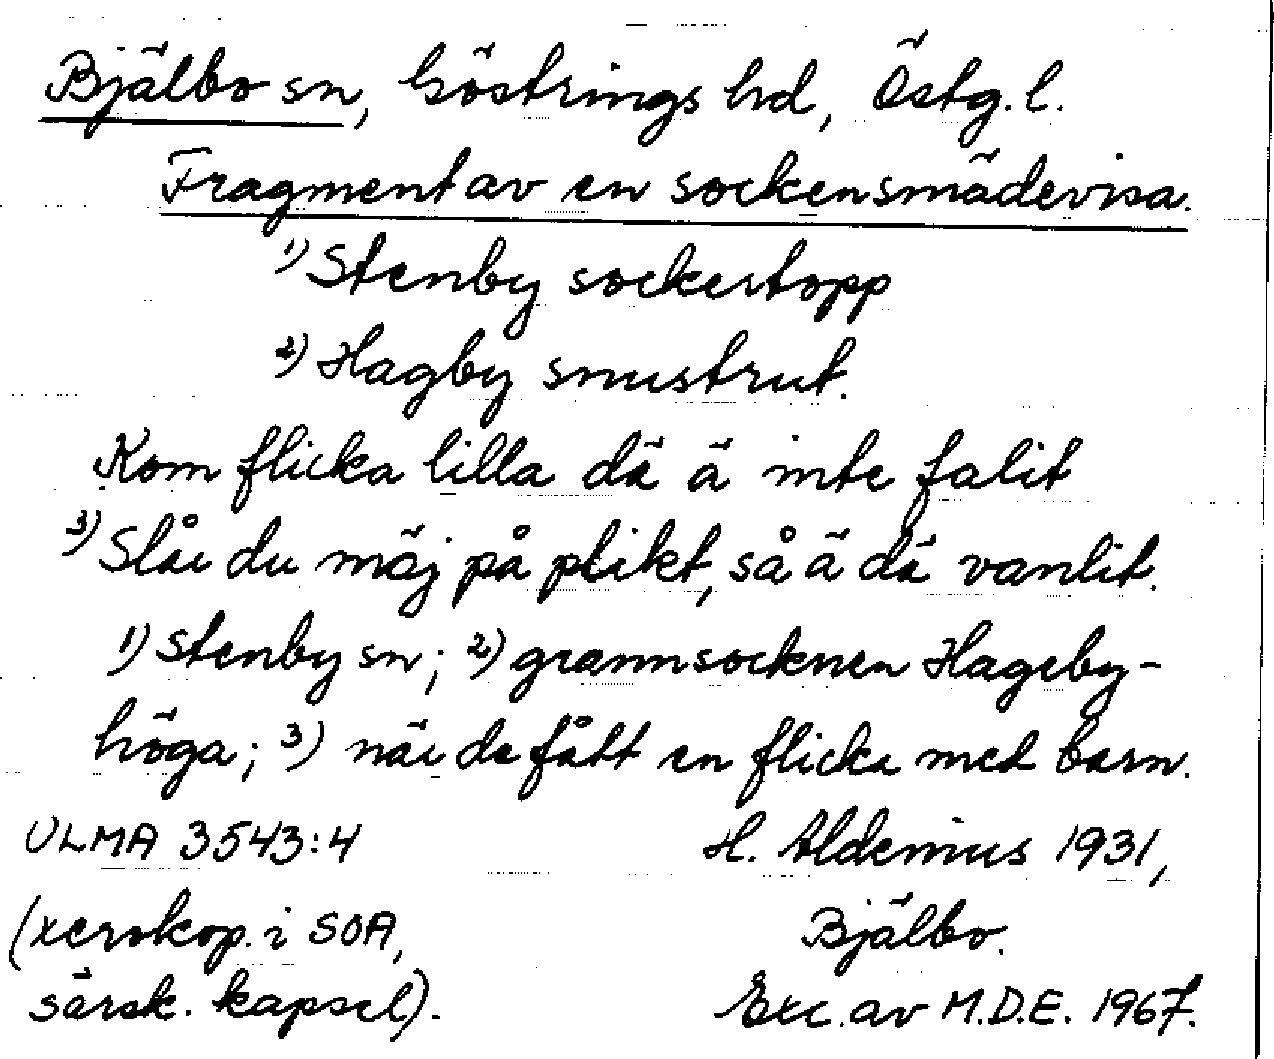 Bjälbo sn, Göstrings hd, Östg. l.
Fragment av en sockensmädevisa.
1) Stenby sockertopp
2) Hagby snustrut.
Kom flicka lilla dä ä inte falit
3) Slår du mäj på plikt, så ä dä vanlit.
1) Stenby sn; 2) grannsocknen Hageby-
höga; 3) när de fått en flicka med barn.
ULMA 3543:4
H. Aldemius 1931,
Bjälbo.
(xerokop. i SOA,
särsk. kapsel).
Exc. av M.D.E. 1967.